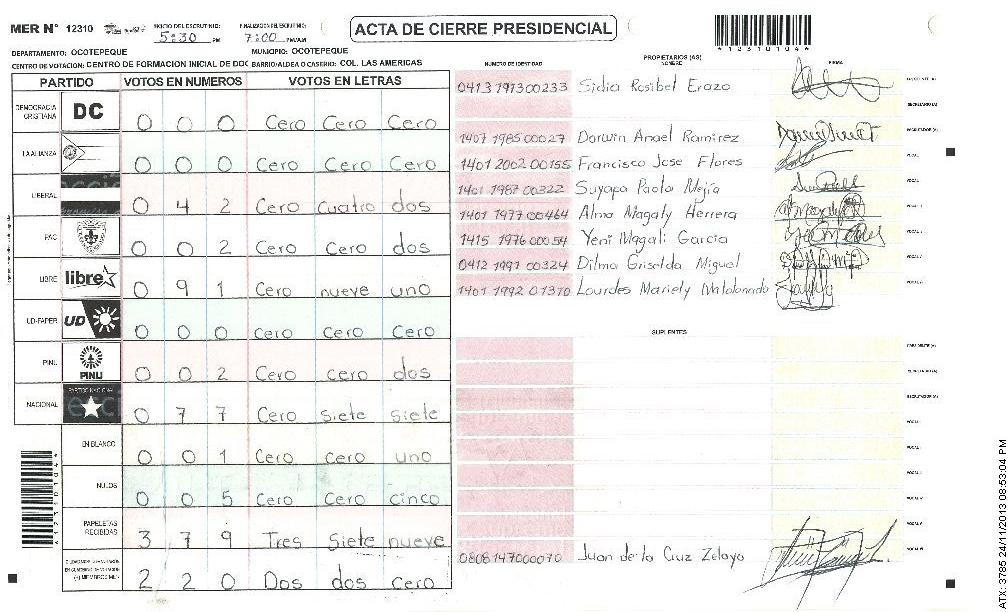 MER N° 12310
INICIO DEL ESCRUTINIO:
5:30 PM
FINALIZACION DEL ESCRUTINIO:
7:00 PM/AM
ACTA DE CIERRE PRESIDENCIAL
DEPARTAMENTO: OCOTEPEQUE
MUNICIPIO: OCOTEPEQUE
CENTRO DE VOTACION: CENTRO DE FORMACION INICIAL DE DOC BARRIO/ALDEA O CASERIO: COL. LAS AMERICAS
PARTIDO VOTOS EN NUMEROS VOTOS EN LETRAS
DEMOCRACIA CRISTIANA DC 0 0 0 Cero Cero Cero
LA ALIANZA 0 0 0 Cero Cero Cero
LIBERAL 0 4 2 Cero cuatro dos
PAC 0 0 2 Cero Cero dos
LIBRE libre 0 9 1 Cero nueve uno
UD-FAPER UD 0 0 0 Cero Cero Cero
PINU PINU 0 0 2 Cero cero dos
NACIONAL PARTIDO NACIONAL 0 7 7 Cero siete siete
EN BLANCO 0 0 1 Cero cero uno
NULOS 0 0 5 Cero Cero cinco
PAPELETAS RECIBIDAS 3 7 9 Tres Siete nueve
2 2 0 Dos dos cero
NUMERO DE IDENTIDAD
PROPIETARIOS (AS)
NOMBRE
FIRMA
0413 1973 00233 Sidia Rosibel Erazo
SECRETARIO (A)
1407 1985 00027 Darwin Anael Ramirez ESCRUTADOR (A)
1401 2002 00155 Francisco Jose Flores
1401 1987 00322 Suyapa Paola Mejia
1401 1977 00464 Alma Magaly Herrera
1415 1976 00054 Yeni Magali Garcia
0412 1991 00324 Dilma Griselda Miguel
1401 1992 01370 Lourdes Mariely Maldonado
SUPLENTES
PRESIDENTE (A)
SECRETARIO (A)
ESCRUTADOR (A)
0808147000070 Juan de la Cruz Zelaya
ATX: 3785 24/11/2013 08:53:04 PM